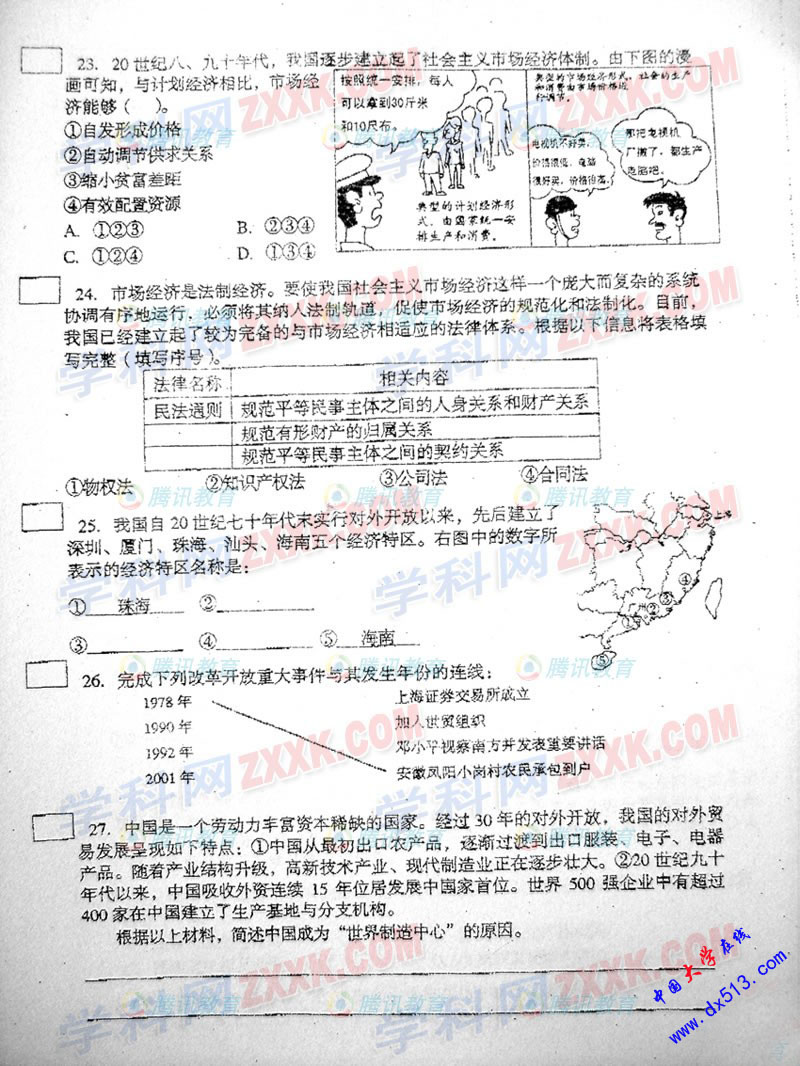 23. 20世纪八、九十年代，我国逐步建立起了社会主义市场经济体制。由下图的漫
画可知，与计划经济相比，市场经
济能够（　）。
①自发形成价格
②自动调节供求关系
③缩小贫富差距
④有效配置资源
A. ①②③
B. ②③④
C. ①②④
D. ①③④
按照统一安排，每人
可以拿到30斤米
和10尺布。
典型的计划经济形
式，由国家统一安
排生产和消费。
典型的市场经济形式，社会的生产
和消费由市场价格进
行调节。
电视机不好卖，
价格很低，电脑
很好卖，价格很高。
那把电视机
厂撤了，都生产
电脑吧。
24. 市场经济是法制经济。要使我国社会主义市场经济这样一个庞大而复杂的系统
协调有序地运行，必须将其纳入法制轨道，促使市场经济的规范化和法制化。目前，
我国已经建立起了较为完备的与市场经济相适应的法律体系。根据以下信息将表格填
写完整（填写序号）。
法律名称 相关内容
民法通则 规范平等民事主体之间的人身关系和财产关系
规范有形财产的归属关系
规范平等民事主体之间的契约关系
①物权法 ②知识产权法 ③公司法 ④合同法
25. 我国自20世纪七十年代末实行对外开放以来，先后建立了
深圳、厦门、珠海、汕头、海南五个经济特区。右图中的数字所
表示的经济特区名称是：
① 珠海 ②
③ ④ ⑤ 海南
上海
广州
① ② ③ ④
⑤
26. 完成下列改革开放重大事件与其发生年份的连线：
1978年 上海证券交易所成立
1990年 加入世贸组织
1992年 邓小平视察南方并发表重要讲话
2001年 安徽凤阳小岗村农民承包到户
27. 中国是一个劳动力丰富资本稀缺的国家。经过30年的对外开放，我国的对外贸
易发展呈现如下特点：①中国从最初出口农产品，逐渐过渡到出口服装、电子、电器
产品。随着产业结构升级，高新技术产业、现代制造业正在逐步壮大。②20世纪九十
年代以来，中国吸收外资连续15年位居发展中国家首位。世界500强企业中有超过
400家在中国建立了生产基地与分支机构。
根据以上材料，简述中国成为“世界制造中心”的原因。
学科网ZXXK.COM
腾讯教育
中国大学在线
www.dx513.com